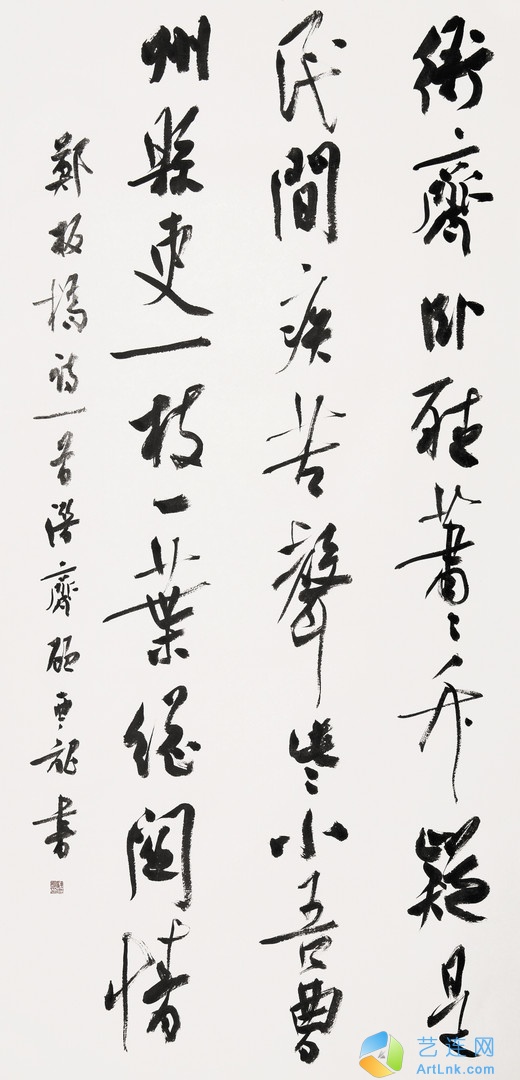 衙齋卧聽蕭〻竹疑是
民間疾苦聲些小吾曹
州縣吏一枝一葉總關情
鄭板橋詩一首 齋 書
艺连网
ArtLnk.com